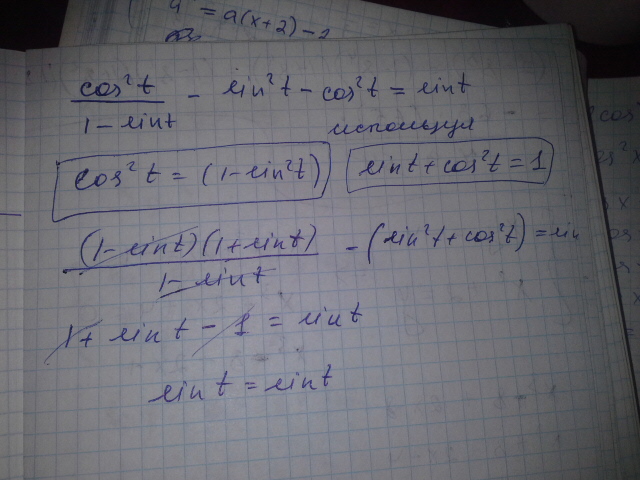 = a(x+2) -
cos²t / 1 - sint - sin²t - cos²t = sint
используя
cos²t = (1 - sin²t)
sint + cos²t = 1
(1 - sint)(1 + sint) / 1 - sint - (sin²t + cos²t) = sin
1 + sint - 1 = sint
sint = sint